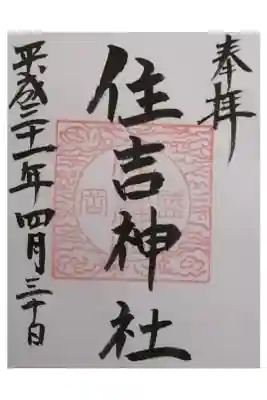 奉拝
住吉神社
平成三十一年四月三十日